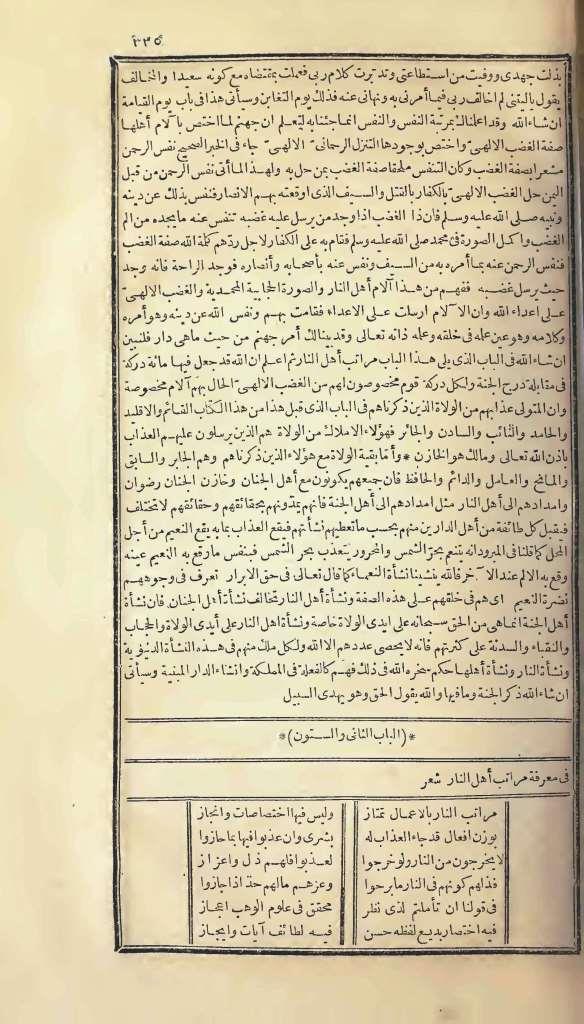 ٣٣٥
بذلت جهدى ووفيت من استطاعتى وتدبرت كلام ربى فعملت بمقتضاه مع كونه سعيدا والمخالف
يقول ياليتنى لم اخالف ربى فيما أمرنى به ونهانى عنه فذلك يوم التغابن وسيأتى هذا فى باب يوم القيامة
ان شاء الله وقد اعلمناك بمرتبة النفس والنفس انما جئنا به ليعلم ان جهنم لما اختص با لام أهلها
صفة الغضب الالهى واختص بوجودها التنزل الرحمانى الالهى جاء فى الخبر الصحيح نفس الرحمن
مشعرا بصفة الغضب وكان التنفس ملحقا صفة الغضب بمن حل به ولهذا لما أتى نفس الرحمن من قبل
اليمن حل الغضب الالهى بالكفار بالقتل والسيف الذى اوقعته بهم الانصار فنفس بذلك عن دينه
ونبيه صلى الله عليه وسلم فان ذا الغضب اذا وجد من يرسل عليه غضبه تنفس عنه ما يجده من الم
الغضب واكمل الصورة فى محمد صلى الله عليه وسلم فقام به على الكفار لاجل ردهم كلمة الله صفة الغضب
فنفس الرحمن عنه بما أمره به من السيف ونفس عنه بأصحابه وأنصاره فوجد الراحة فانه وجد
حيث يرسل غضبه فقهم من هذا آلام أهل النار والصورة الحجابية المحمدية والغضب الالهى
على اعداء الله وان الا لام ارسلت على الاعداء فقامت بهم ونفس الله عن دينه وهو أمره
وكلامه وهو عين علمه فى خلقه وعلمه ذاته تعالى وقد بينا لك أمر جهنم من حيث ماهى دار فلنبين
ان شاء الله فى الباب الذى يلى هذا الباب مراتب أهل النار ثم اعلم ان الله قد جعل فيها مائة دركة
فى مقابلة درج الجنة ولكل دركة قوم مخصوصون لهم من الغضب الالهى الحال بهم آلام مخصوصة
وان المتولى عذابهم من الولاة الذين ذكرناهم فى الباب الذى قبل هذا من هذا الكتاب القائم والاقليد
والحامد والنائب والسادن والجائر فهؤلاء الاملاك من الولاة هم الذين يرسلون عليهم العذاب
باذن الله تعالى ومالك هو الخازن * وأما بقية الولاة مع هؤلاء الذين ذكرناهم وهم الجابر والسابق
والمانح والعامل والدائم والحافظ فان جميعهم يكونون مع أهل الجنان وخازن الجنان رضوان
وامدادهم الى أهل النار مثل امدادهم الى أهل الجنة فانهم يمدونهم بحقائقهم وحقائقهم لا تختلف
فيقبل كل طائفة من أهل الدارين منهم بحسب ما تعطيهم نشأتهم فيقع العذاب بما به يقع النعيم من أجل
المحل كما قلنا فى المبرود انه يتنعم بحر الشمس والمحرور يتعذب بحر الشمس فنفس ما وقع به النعيم عينه
وقع به الالم عند الا خر فالله ينشينا نشأة النعماء كما قال تعالى فى حق الابرار تعرف فى وجوههم
نضرة النعيم اى هم فى خلقهم على هذه الصفة ونشأة أهل النار تخالف نشأة أهل الجنان فان نشأة
أهل الجنة انما هى من الحق سبحانه على ايدى الولاة خاصة ونشأة اهل النار على أيدى الولاة والحجاب
والنقباء والسدنة على كثرتهم فانه لا يحصى عددهم الا الله ولكل ملك منهم فى هذه النشأة الدنيوية
ونشأة النار ونشأة أهلها حكم سخره الله فى ذلك فهم كالفعلة فى المملكة وانشاء الدار المبنية وسيأتى
ان شاء الله ذكر الجنة وما فيها والله يقول الحق وهو يهدى السبيل
*(الباب الثانى والستون)*
فى معرفة مراتب أهل النار شعر
مراتب النار بالاعمال تمتاز وليس فيها اختصاصات وانجاز
بوزن افعال قد جاء العذاب له بشرى وان عذبوا فيها بما حازوا
لا يخرجون من النار ولو خرجوا لعذبوا فلهم ذل واعزاز
فذلهم كونهم فى النار ما برحوا وعزهم مالهم حتى اذا جازوا
فى قولنا ان تأملتم لذى نظر محقق فى علوم الوهب اعجاز
فيه اختصار بديع لفظه حسن فيه لطائف آيات وايجاز